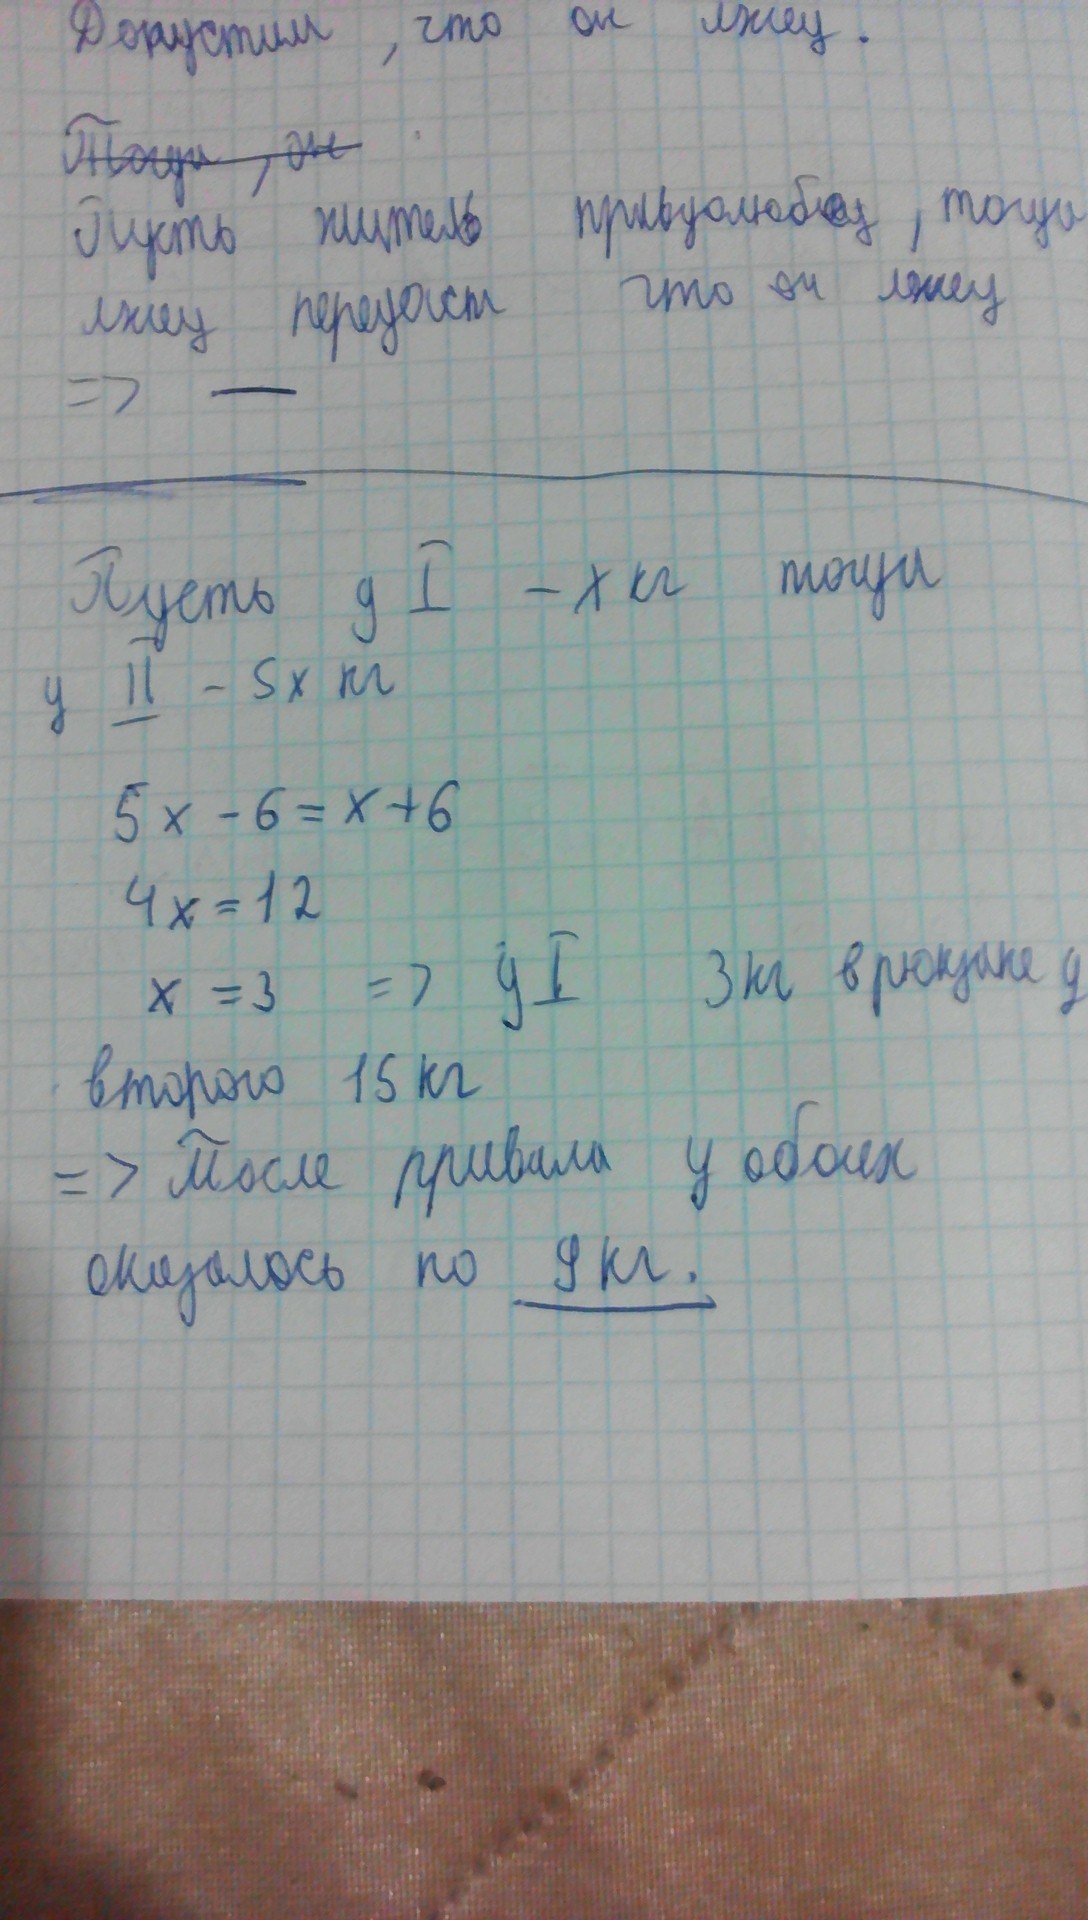 Допустим, что он лжец.
Тогда, он
Пусть житель правдолюбец, тогда
лжец передаст что он лжец
=> —
Пусть у I - x кг тогда
у II - 5x кг
5x - 6 = x + 6
4x = 12
x = 3 => у I 3 кг в рюкзаке у
второго 15 кг
=> После привала у обоих
оказалось по 9 кг.